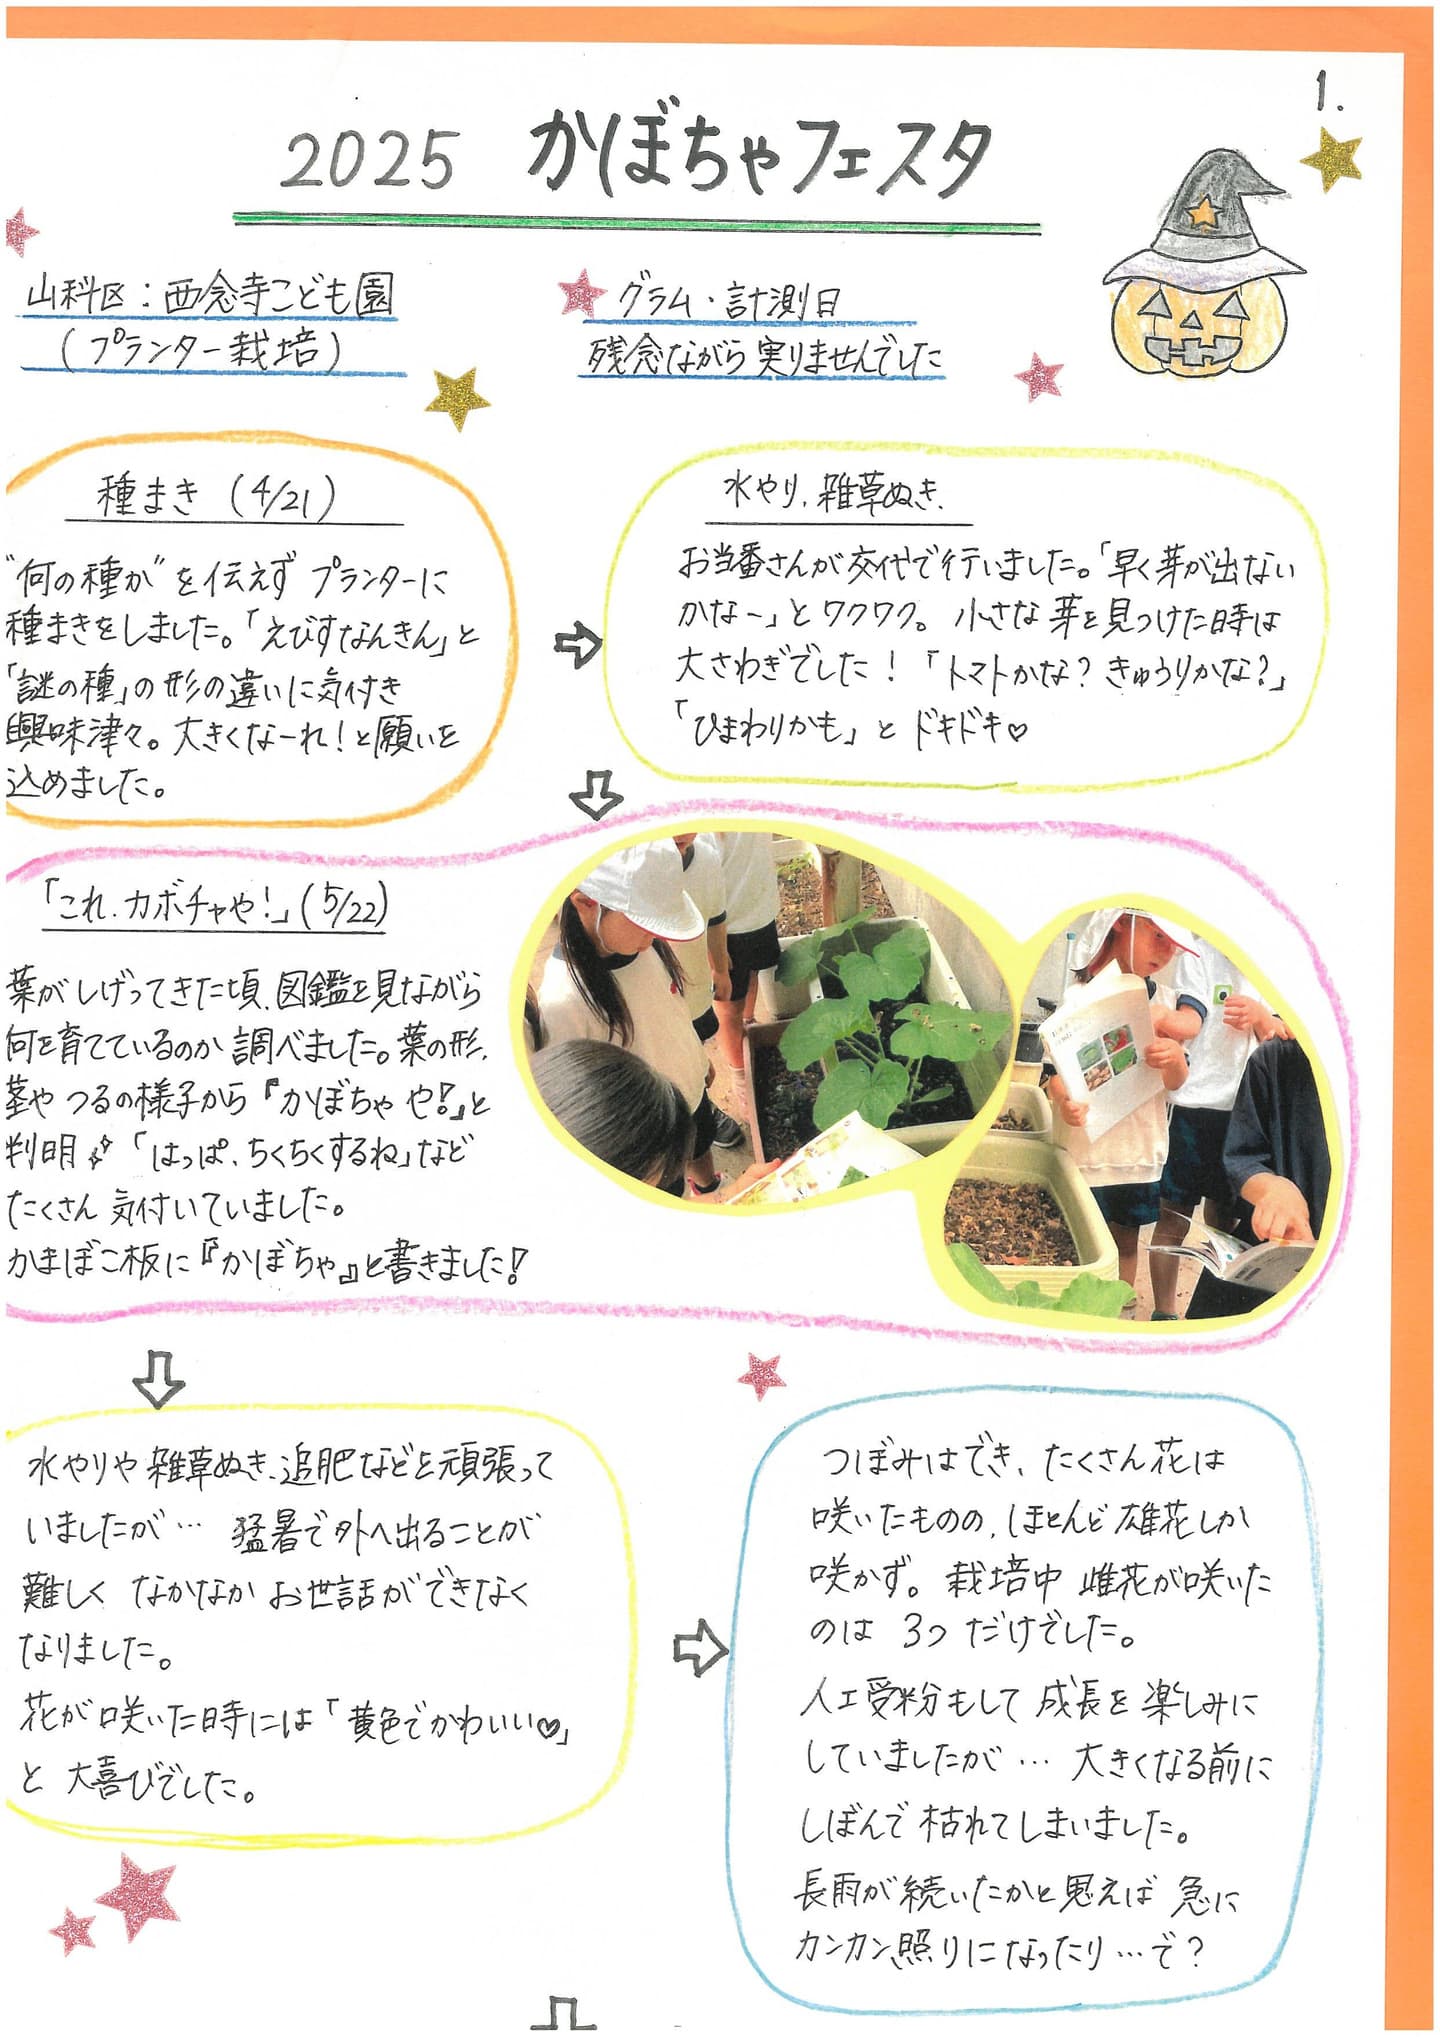 1.
2025 かぼちゃフェスタ
山科区：西念寺こども園
（プランター栽培）
グラム・計測日
残念ながら実りませんでした
種まき（4/21）
"何の種か"を伝えず プランターに
種まきをしました。「えびすなんきん」と
「謎の種」の形の違いに気付き
興味津々。大きくなーれ！と願いを
込めました。
水やり、雑草ぬき、
お当番さんが交代で行いました。「早く芽が出ない
かなー」とワクワク。小さな芽を見つけた時は
大さわぎでした！「トマトかな？きゅうりかな？」
「ひまわりかも」と ドキドキ♡
「これ、カボチャや！」（5/22）
葉がしげってきた頃、図鑑を見ながら
何を育てているのか調べました。葉の形、
茎や つるの様子から『かぼちゃや！』と
判明 「はっぱ、ちくちくするね」など
たくさん気付いていました。
かまぼこ板に『かぼちゃ』と書きました！
水やりや雑草ぬき、追肥などを頑張って
いましたが… 猛暑で外へ出ることが
難しく なかなか お世話ができなく
なりました。
花が咲いた時には「黄色でかわいい♡」
と 大喜びでした。
つぼみはでき、たくさん花は
咲いたものの、ほとんど雄花しか
咲かず。栽培中 雌花が咲いた
のは 3つ だけでした。
人工受粉もして 成長を楽しみに
していましたが… 大きくなる前に
しぼんで枯れてしまいました。
長雨が続いたかと思えば 急に
カンカン照りになったり…で？